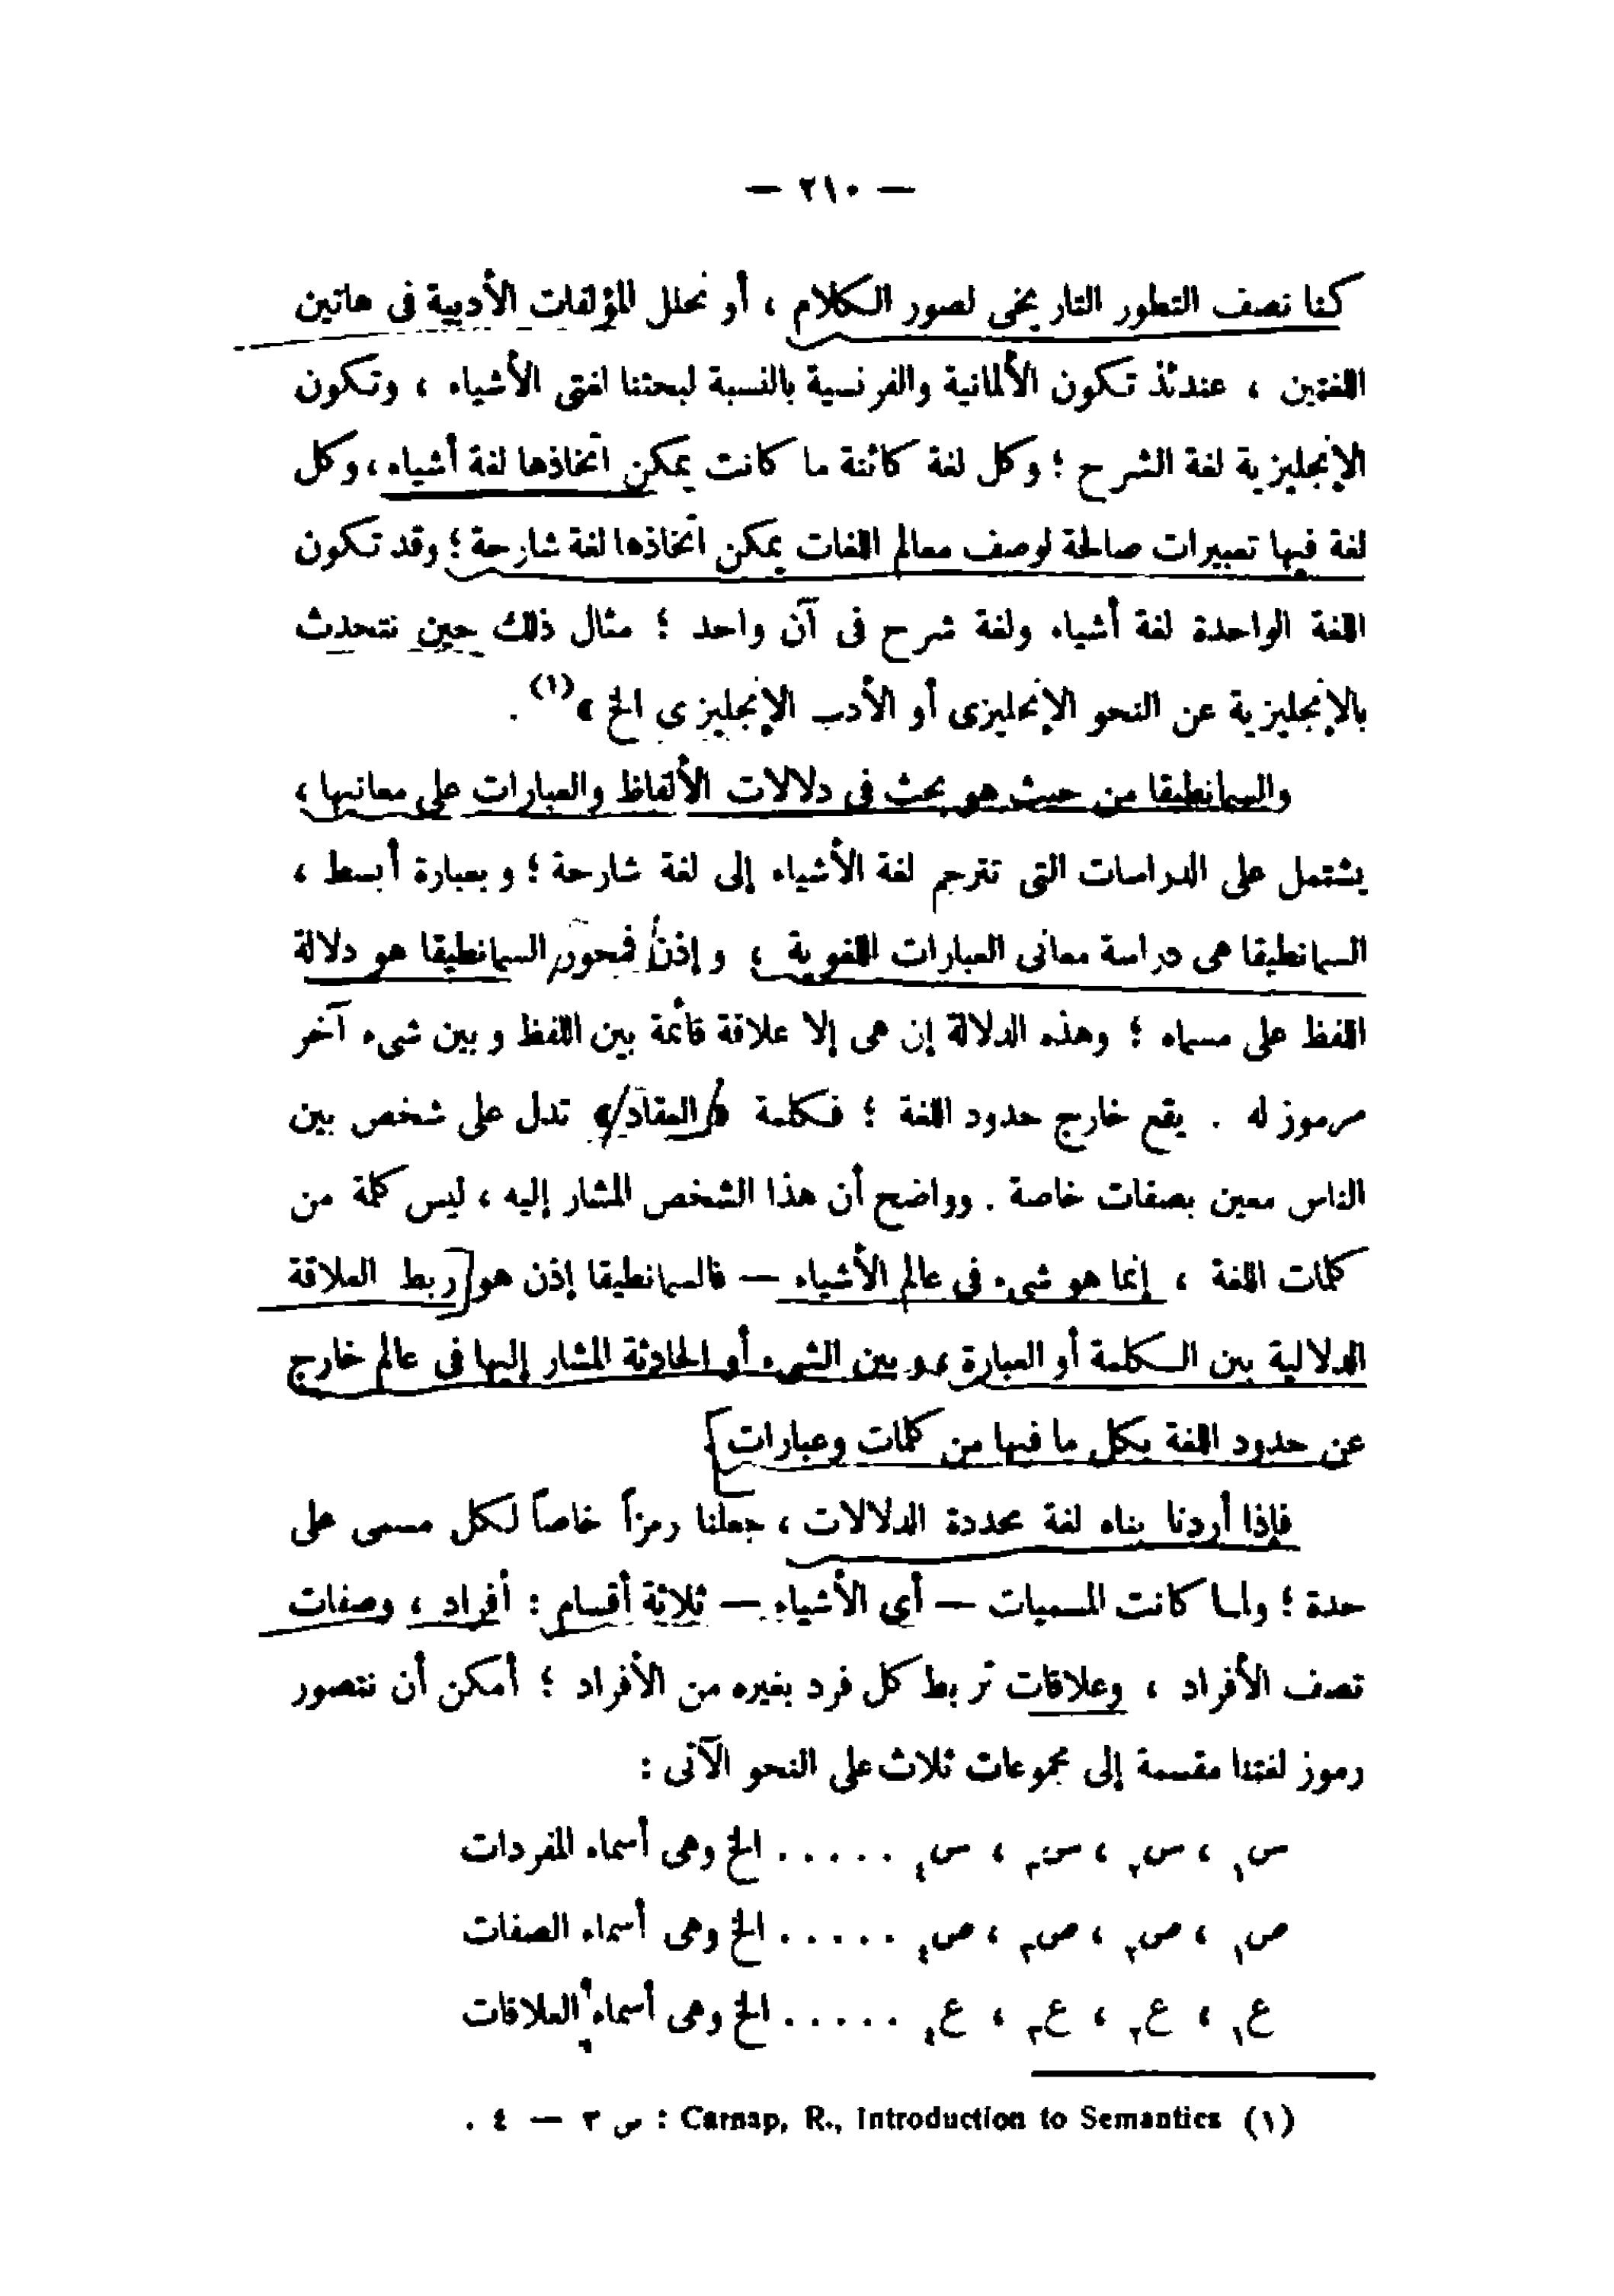 — ٢١٠ —
كنا نصف التطور التاريخى لصور الكلام ، أو نحلل المؤلفات الأدبية فى هاتين
اللغتين ، عندئذ تكون الألمانية والفرنسية بالنسبة لبحثنا لغتى الأشياء ، وتكون
الإنجليزية لغة الشرح ؛ وكل لغة كائنة ما كانت يمكن اتخاذها لغة أشياء ، وكل
لغة فيها تعبيرات صالحة لوصف معالم اللغات يمكن اتخاذها لغة شارحة ؛ وقد تكون
اللغة الواحدة لغة أشياء ولغة شرح فى آن واحد ؛ مثال ذلك حين نتحدث
بالإنجليزية عن النحو الإنجليزى أو الأدب الإنجليزى الخ »(١) .
والسيمانطيقا من حيث هو بحث فى دلالات الألفاظ والعبارات على معانيها ،
يشتمل على الدراسات التى تترجم لغة الأشياء إلى لغة شارحة ؛ وبعبارة أبسط ،
السيمانطيقا هى دراسة معانى العبارات اللغوية ، وإذن فمحور السيمانطيقا هو دلالة
اللفظ على مسماه ؛ وهذه الدلالة إن هى إلا علاقة قائمة بين اللفظ وبين شىء آخر
مرموز له . يقع خارج حدود اللغة ؛ فكلمة « العقاد » تدل على شخص بين
الناس معين بصفات خاصة . وواضح أن هذا الشخص المشار إليه ، ليس كلمة من
كلمات اللغة ، إنما هو شىء فى عالم الأشياء — فالسيمانطيقا إذن هو ربط العلاقة
الدلالية بين الكلمة أو العبارة ، وبين الشىء أو الحادثة المشار إليها فى عالم خارج
عن حدود اللغة بكل ما فيها من كلمات وعبارات .
فإذا أردنا بناء لغة محددة الدلالات ، جعلنا رمزاً خاصاً لكل مسمى على
حدة ؛ ولما كانت المسميات — أى الأشياء — ثلاثة أقسام : أفراد ، وصفات
تصف الأفراد ، وعلاقات تربط كل فرد بغيره من الأفراد ؛ أمكن أن نتصور
رموز لغتنا مقسمة إلى مجموعات ثلاث على النحو الآتى :
س١ ، س٢ ، س٣ ، س٤ ..... الخ وهى أسماء المفردات
ص١ ، ص٢ ، ص٣ ، ص٤ ..... الخ وهى أسماء الصفات
ع١ ، ع٢ ، ع٣ ، ع٤ ..... الخ وهى أسماء العلاقات
(١) Carnap, R., Introduction to Semantics : ص ٣ — ٤ .